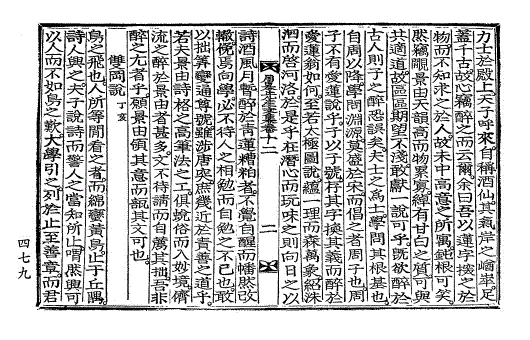 力士於殿上天子呼來自稱酒仙其氣岸之崷崒足
蓋千古故心竊醉之而云爾余曰吾以蓮字換之於
物而不知求之於人故未中高意之所寓鈍根可笑
然竊覸景由天韻高而物累寡綽有甘白之質可與
共適道故區區期望不淺敢獻一說可乎旣欲醉於
古人則子之醉恐誤矣夫士之爲士學問其根基也
自周以降學問淵源莫盛於宋而倡之者周子也周
子不有愛蓮說乎子以子號枰其字換其義而醉於
愛蓮翁如何至若太極圖說蘊一理而森萬象紹洙
泗而啓河洛於是乎在潛心而玩味之則向日之以
詩酒風月暫醉於靑蓮糟粕者不覺自醒而幡然改
轍俛焉向學必不待人之相勉而自勉之不已也敢
以拙箋變遜尊號雖涉唐突庶幾近於責善之道乎
若夫景由詩格之高筆法之工俱蛻俗而入妙境儕
流之醉於景由者甚多文不待請而自薦其拙吾非
醉之尤者乎願景由領其意而瓿其文可也
雙岡說 丁亥
鳥之飛也人所等閒看之者而綿蠻黃鳥止于丘隅
詩人興之夫子說詩而警人之當知所止喟然興可
以人而不如鳥之歎大學引之列於止至善章而君
二
四七九